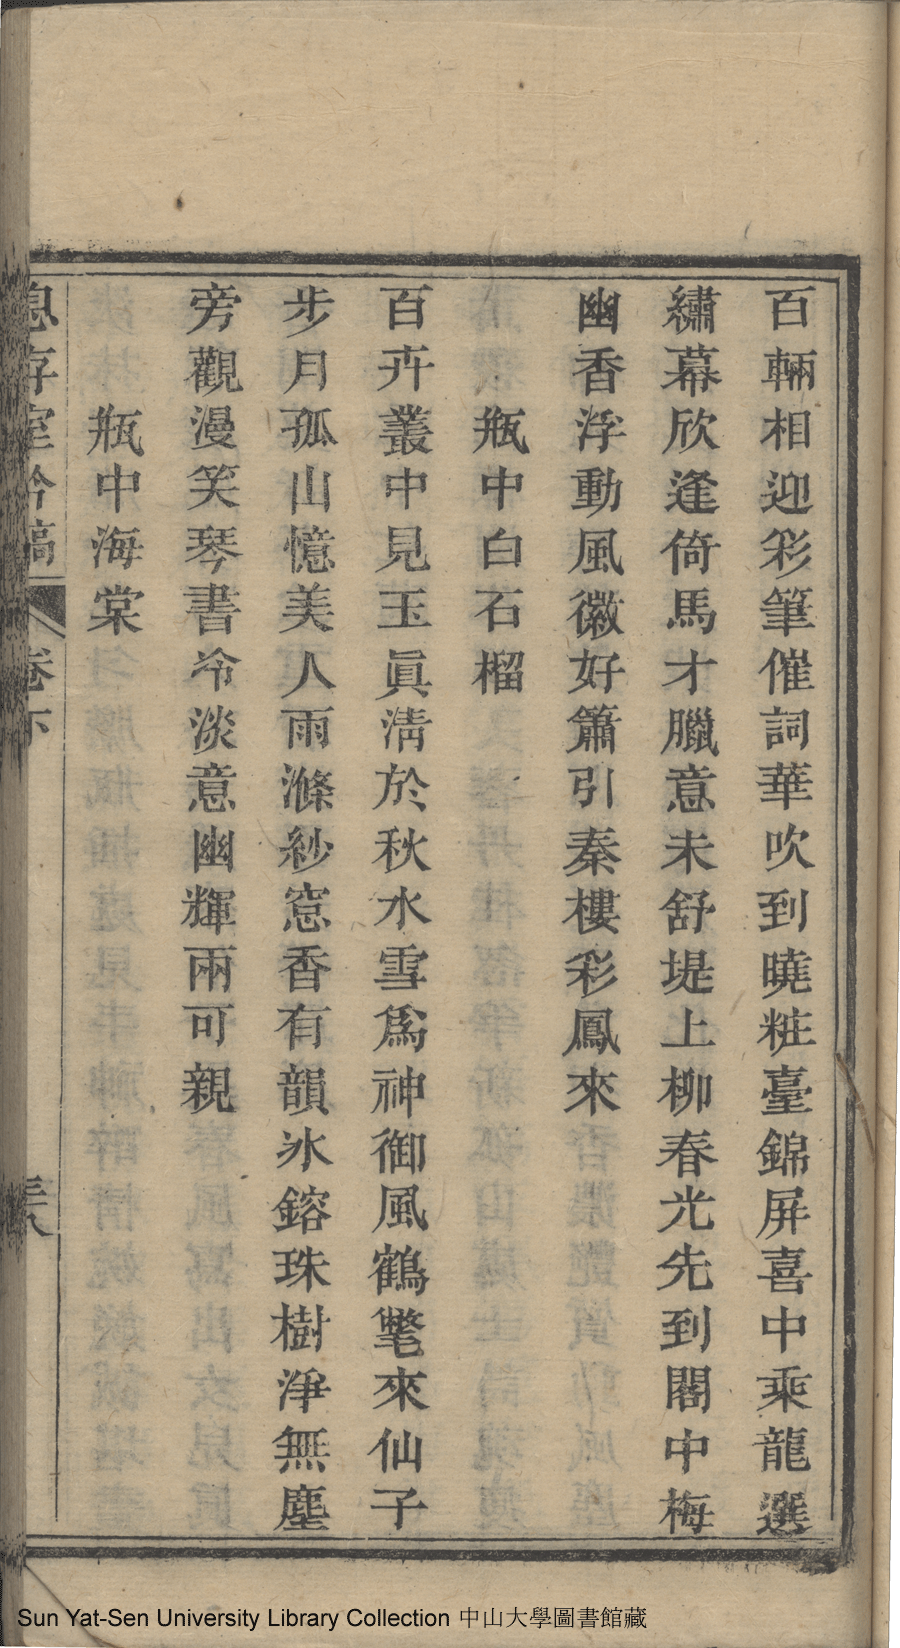 百輛相迎彩筆催詞華吹到曉粧臺錦屏喜中乘龍選
繡幕欣逢倚馬才臘意未舒堤上柳春光先到閣中梅
幽香浮動風徽好簫引秦樓彩鳳來
瓶中白石榴
百卉叢中見玉眞淸於秋水雪爲神御風鶴氅來仙子
步月孤山憶美人雨滌紗窓香有韻氷鎔珠樹淨無塵
旁觀漫笑琴書冷淡意幽輝兩可親
瓶中海棠
息存室吟稿 卷下 三八
Sun Yat-Sen University Library Collection 中山大學圖書館藏